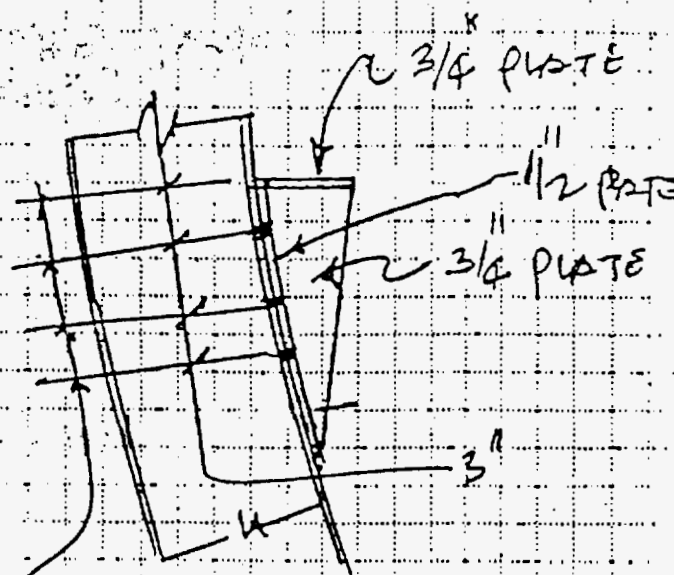 3/4" PLATE
1/2" PLATE
3/4" PLATE
3"